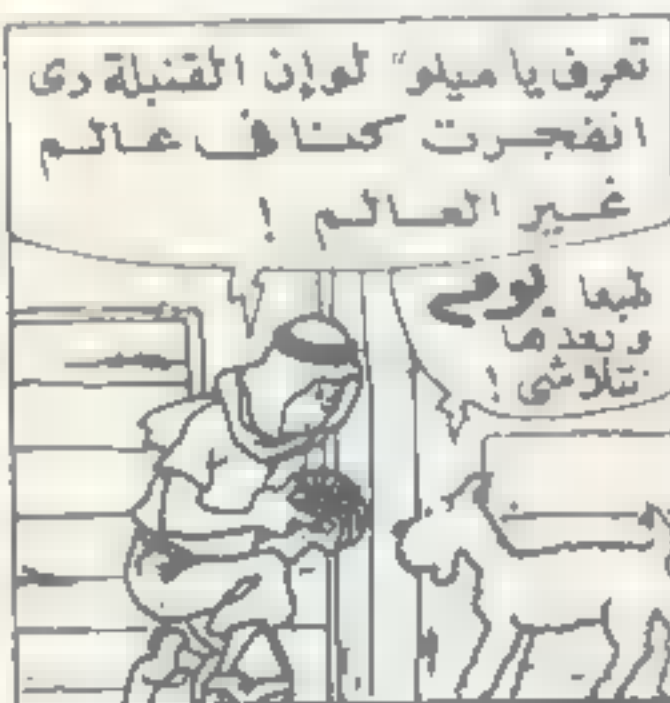 تعرف يا ميلو" لو إن القنبلة دى
انفجرت كنا ف عالم
غير العالم !
طبعا بومم
وبعدها
نتلاشى !